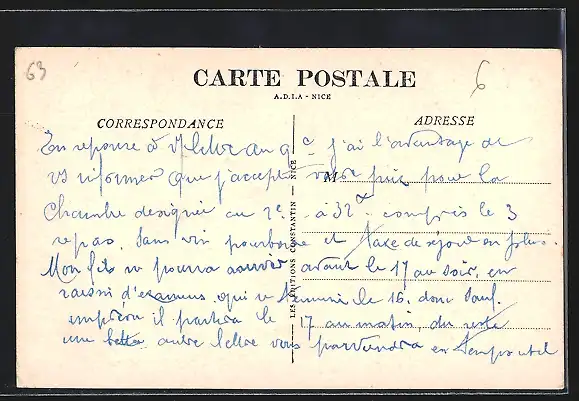 63
6
CARTE POSTALE
A.D.I.A - NICE
CORRESPONDANCE
ADRESSE
En reponse à v/ lettre du 9 c j'ai l'avantage de
vs informer que j'accepte votre prix pour la
Chambre designée au 2e à 32 compris le 3
repas, Sans vin pourboire et taxe de séjour en plus.
Mon fils ne pourra arriver avant le 17 au soir, en
raison d'examens qui se termine le 16. donc Sauf
imprévu il partira le 17 au matin, du reste
une autre lettre vous parviendra en temps utile
M
LES EDITIONS CONSTANTIN — NICE